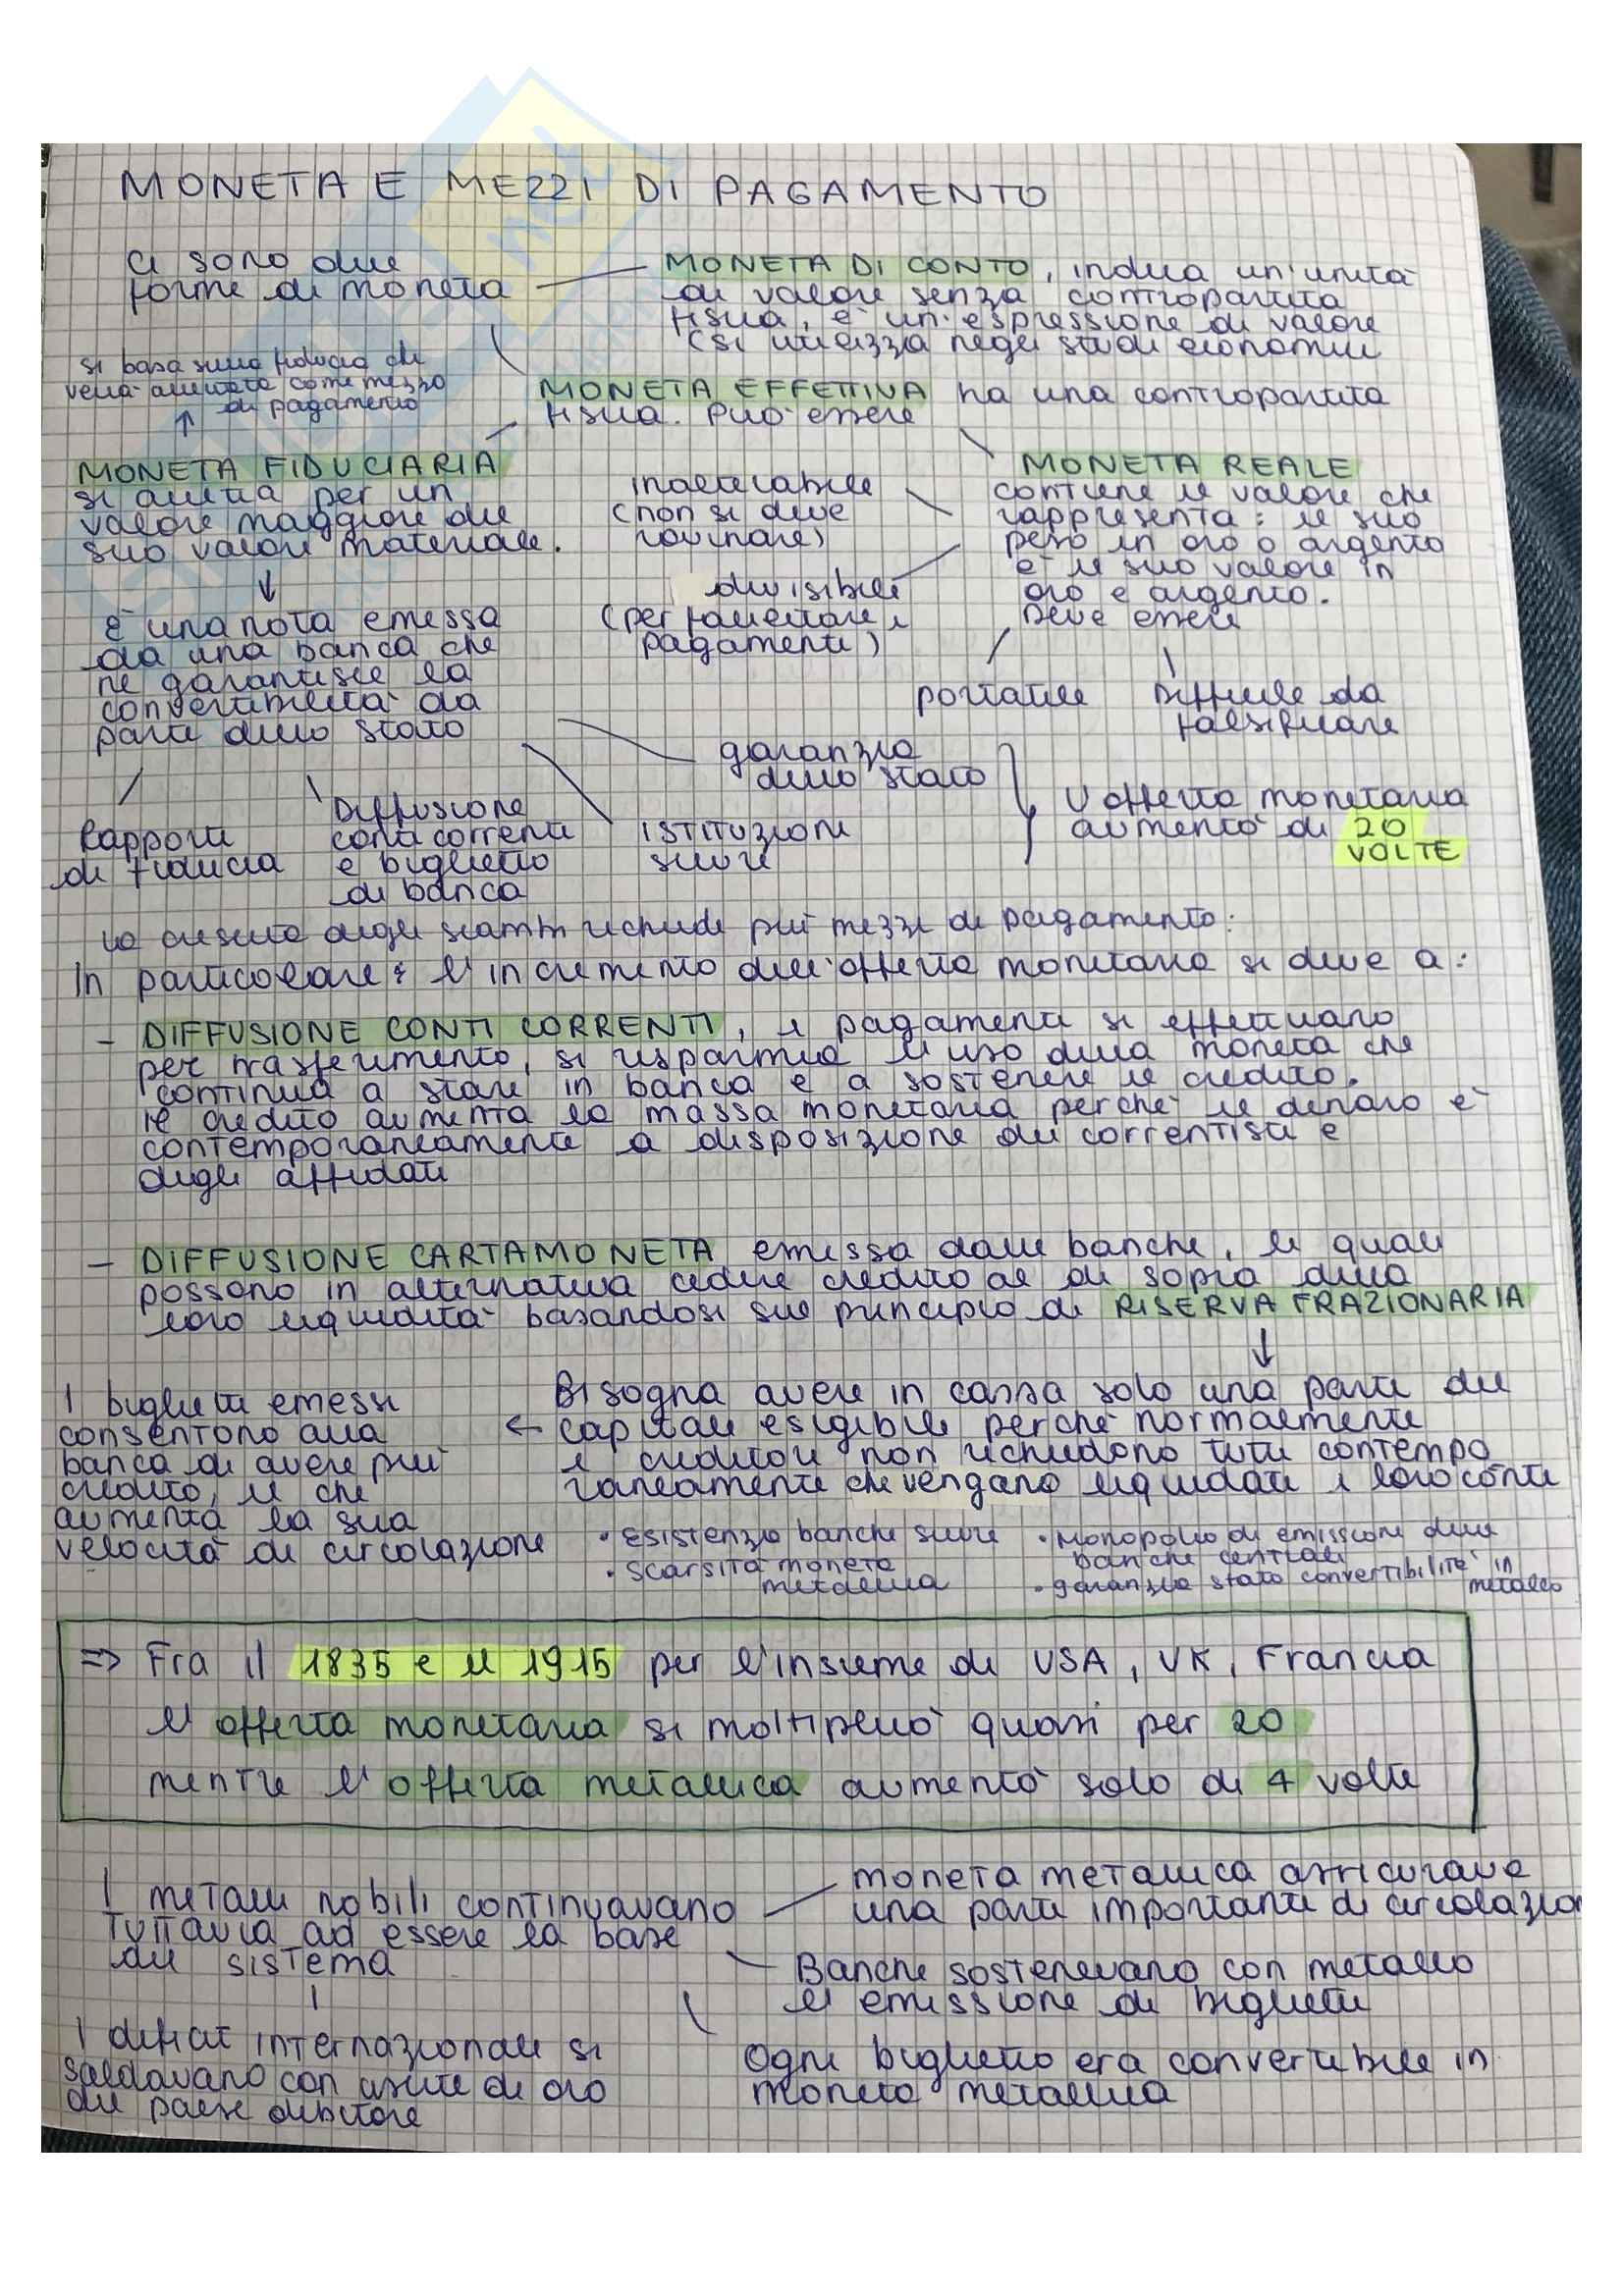 MONETA E MEZZI DI PAGAMENTO
Ci sono due
forme di moneta
MONETA DI CONTO, indica un'unità
di valore senza contropartita
fisica, è un'espressione di valore
(si utilizza negli studi economici
MONETA EFFETTIVA ha una contropartita
fisica. Può essere
si basa sulla fiducia che
verrà accettata come mezzo
di pagamento
MONETA FIDUCIARIA
si accetta per un
valore maggiore del
suo valore materiale.
è una nota emessa
da una banca che
ne garantisce la
convertibilità da
parte dello stato
MONETA REALE
contiene il valore che
rappresenta: il suo
peso in oro o argento
è il suo valore in
oro e argento.
Deve essere
inalterabile
(non si deve
rovinare)
divisibile
(per facilitare i
pagamenti)
portatile
Difficile da
falsificare
Rapporti
di fiducia
Diffusione
conti correnti
e biglietto
di banca
ISTITUZIONI
sicure
garanzia
dello stato
L'offerta monetaria
aumentò di 20
VOLTE
La crescita degli scambi richiede più mezzi di pagamento:
In particolare l'incremento dell'offerta monetaria si deve a:
- DIFFUSIONE CONTI CORRENTI, i pagamenti si effettuano
per trasferimento, si risparmia l'uso della moneta che
continua a stare in banca e a sostenere il credito.
il credito aumenta la massa monetaria perchè il denaro è
contemporaneamente a disposizione dei correntisti e
degli affidati
- DIFFUSIONE CARTAMONETA emessa dalle banche, le quali
possono in alternativa cedere credito al di sopra della
loro liquidità basandosi sul principio di RISERVA FRAZIONARIA
Bisogna avere in cassa solo una parte dei
capitali esigibili perchè normalmente
i creditori non richiedono tutti contempo
raneamente che vengano liquidati i loro conti
I biglietti emessi
consentono alla
banca di avere più
credito, il che
aumenta la sua
velocità di circolazione
• Esistenza banche sicure
• Scarsità moneta
metallica
• Monopolio di emissione delle
banche centrali
• garanzia stato convertibilità in
metallo
=> Fra il 1835 e il 1915 per l'insieme di USA, UK, Francia
l'offerta monetaria si moltiplicò quasi per 20
mentre l'offerta metallica aumentò solo di 4 volte
I metalli nobili continuavano
tuttavia ad essere la base
del sistema
moneta metallica assicurava
una parte importante di circolazion
Banche sostenevano con metallo
l'emissione di biglietti
Ogni biglietto era convertibile in
moneta metallica
I deficit internazionali si
saldavano con uscite di oro
del paese debitore